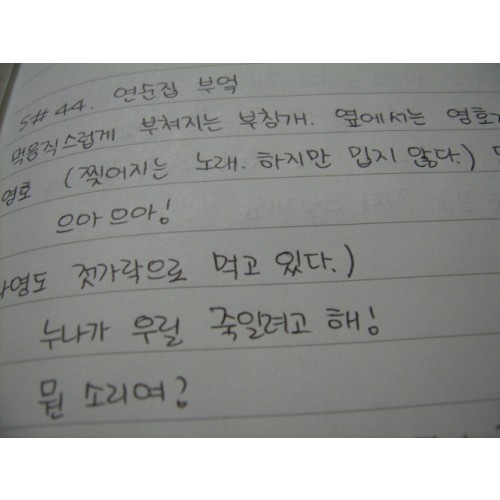 S# 44. 연순집 부엌
먹음직스럽게 부쳐지는 부침개. 옆에서는 영호가
영호 (찢어지는 노래. 하지만 밉지 않다.)
으아 으아!
나영도 젓가락으로 먹고 있다.)
누나가 우릴 죽일려고 해!
뭔 소리여?